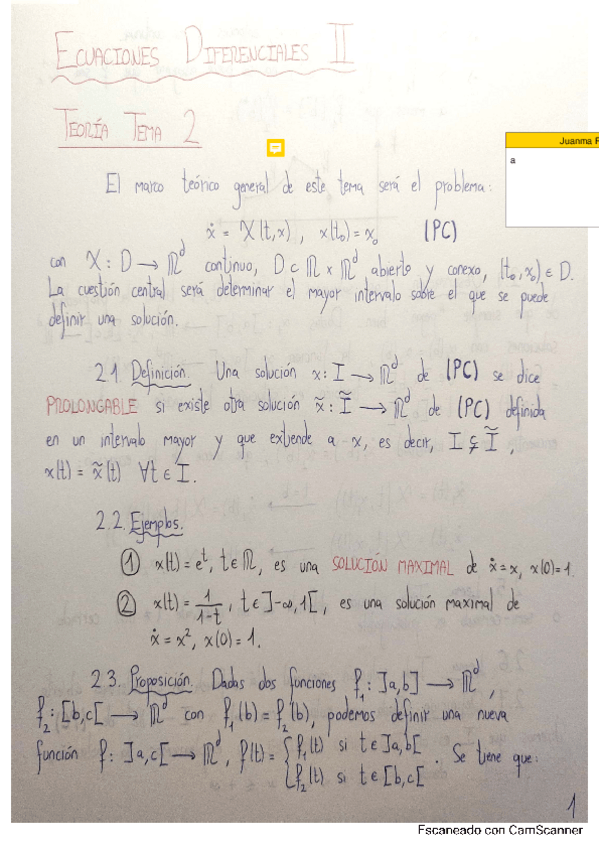 ECUACIONES DIFERENCIALES II
TEORÍA TEMA 2
Juanma F
a
El marco teórico general de este tema será el problema:
ẋ = X(t,x) , x(t₀) = x₀ (PC)
con X : D → ℝᵈ continuo, D ⊂ ℝ × ℝᵈ abierto y conexo, (t₀, x₀) ∈ D.
La cuestión central será determinar el mayor intervalo sobre el que se puede
definir una solución.
2.1. Definición. Una solución x : I → ℝᵈ de (PC) se dice
PROLONGABLE si existe otra solución x̃ : Ĩ → ℝᵈ de (PC) definida
en un intervalo mayor y que extiende a x, es decir, I ⊊ Ĩ ,
x(t) = x̃(t) ∀t ∈ I.
2.2. Ejemplos.
① x(t) = eᵗ, t ∈ ℝ, es una SOLUCIÓN MAXIMAL de ẋ = x, x(0) = 1.
② x(t) = 1/(1-t) , t ∈ ]-∞, 1[ , es una solución maximal de
ẋ = x², x(0) = 1.
2.3. Proposición. Dadas dos funciones f₁ : ]a,b] → ℝᵈ ,
f₂ : [b,c[ → ℝᵈ con f₁(b) = f₂(b), podemos definir una nueva
función f : ]a,c[ → ℝᵈ, f(t) = { f₁(t) si t ∈ ]a,b[
f₂(t) si t ∈ [b,c[ . Se tiene que:
1
Escaneado con CamScanner